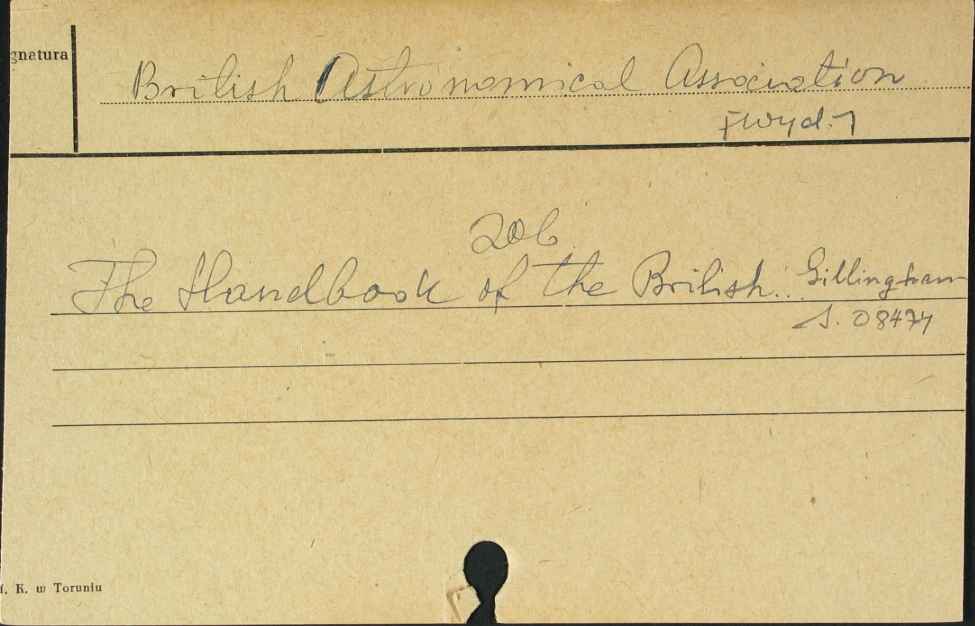 gnatura
British Astronomical Association
[wyd.]
206
The Handbook of the British... Gillingham
S. 08474
K. w Toruniu